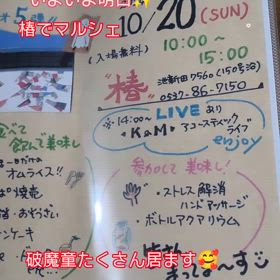 いよいよ明日✨
椿でマルシェ
10/20 (SUN)
(入場無料)
10:00〜
15:00
"椿"
池新田7560(150号沿)
0537-86-7150
※14:00〜 LIVEあり
<K&M> アコースティックライブ
enjoy
参加して 美味し!
・ストレス解消
ハンドマッサージ
・ボトルアクアリウム
食べて
飲んで美味し
オムライス!!
焼売
・おぜんざい
ケーキ
破魔童たくさん居ます🥰
待ってま〜す